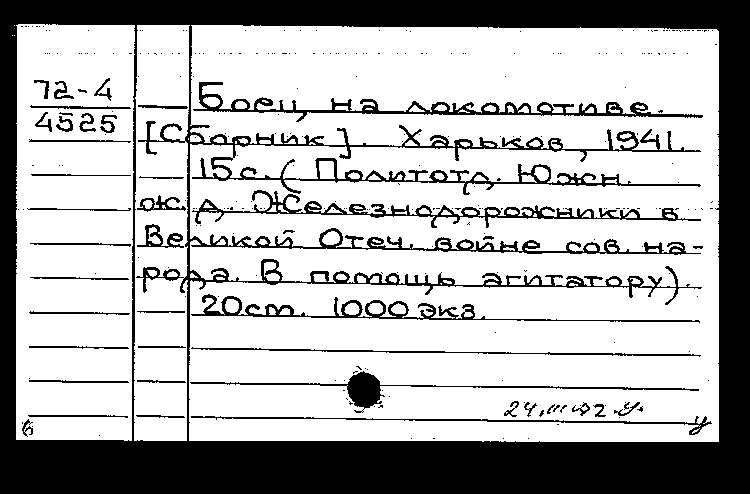 72-4
4525
Боец на локомотиве.
[Сборник]. Харьков, 1941.
15 с. (Политотд. Южн.
ж. д. Железнодорожники в
Великой Отеч. войне сов. на-
рода. В помощь агитатору).
20 ст. 1000 экз.
24.III.72